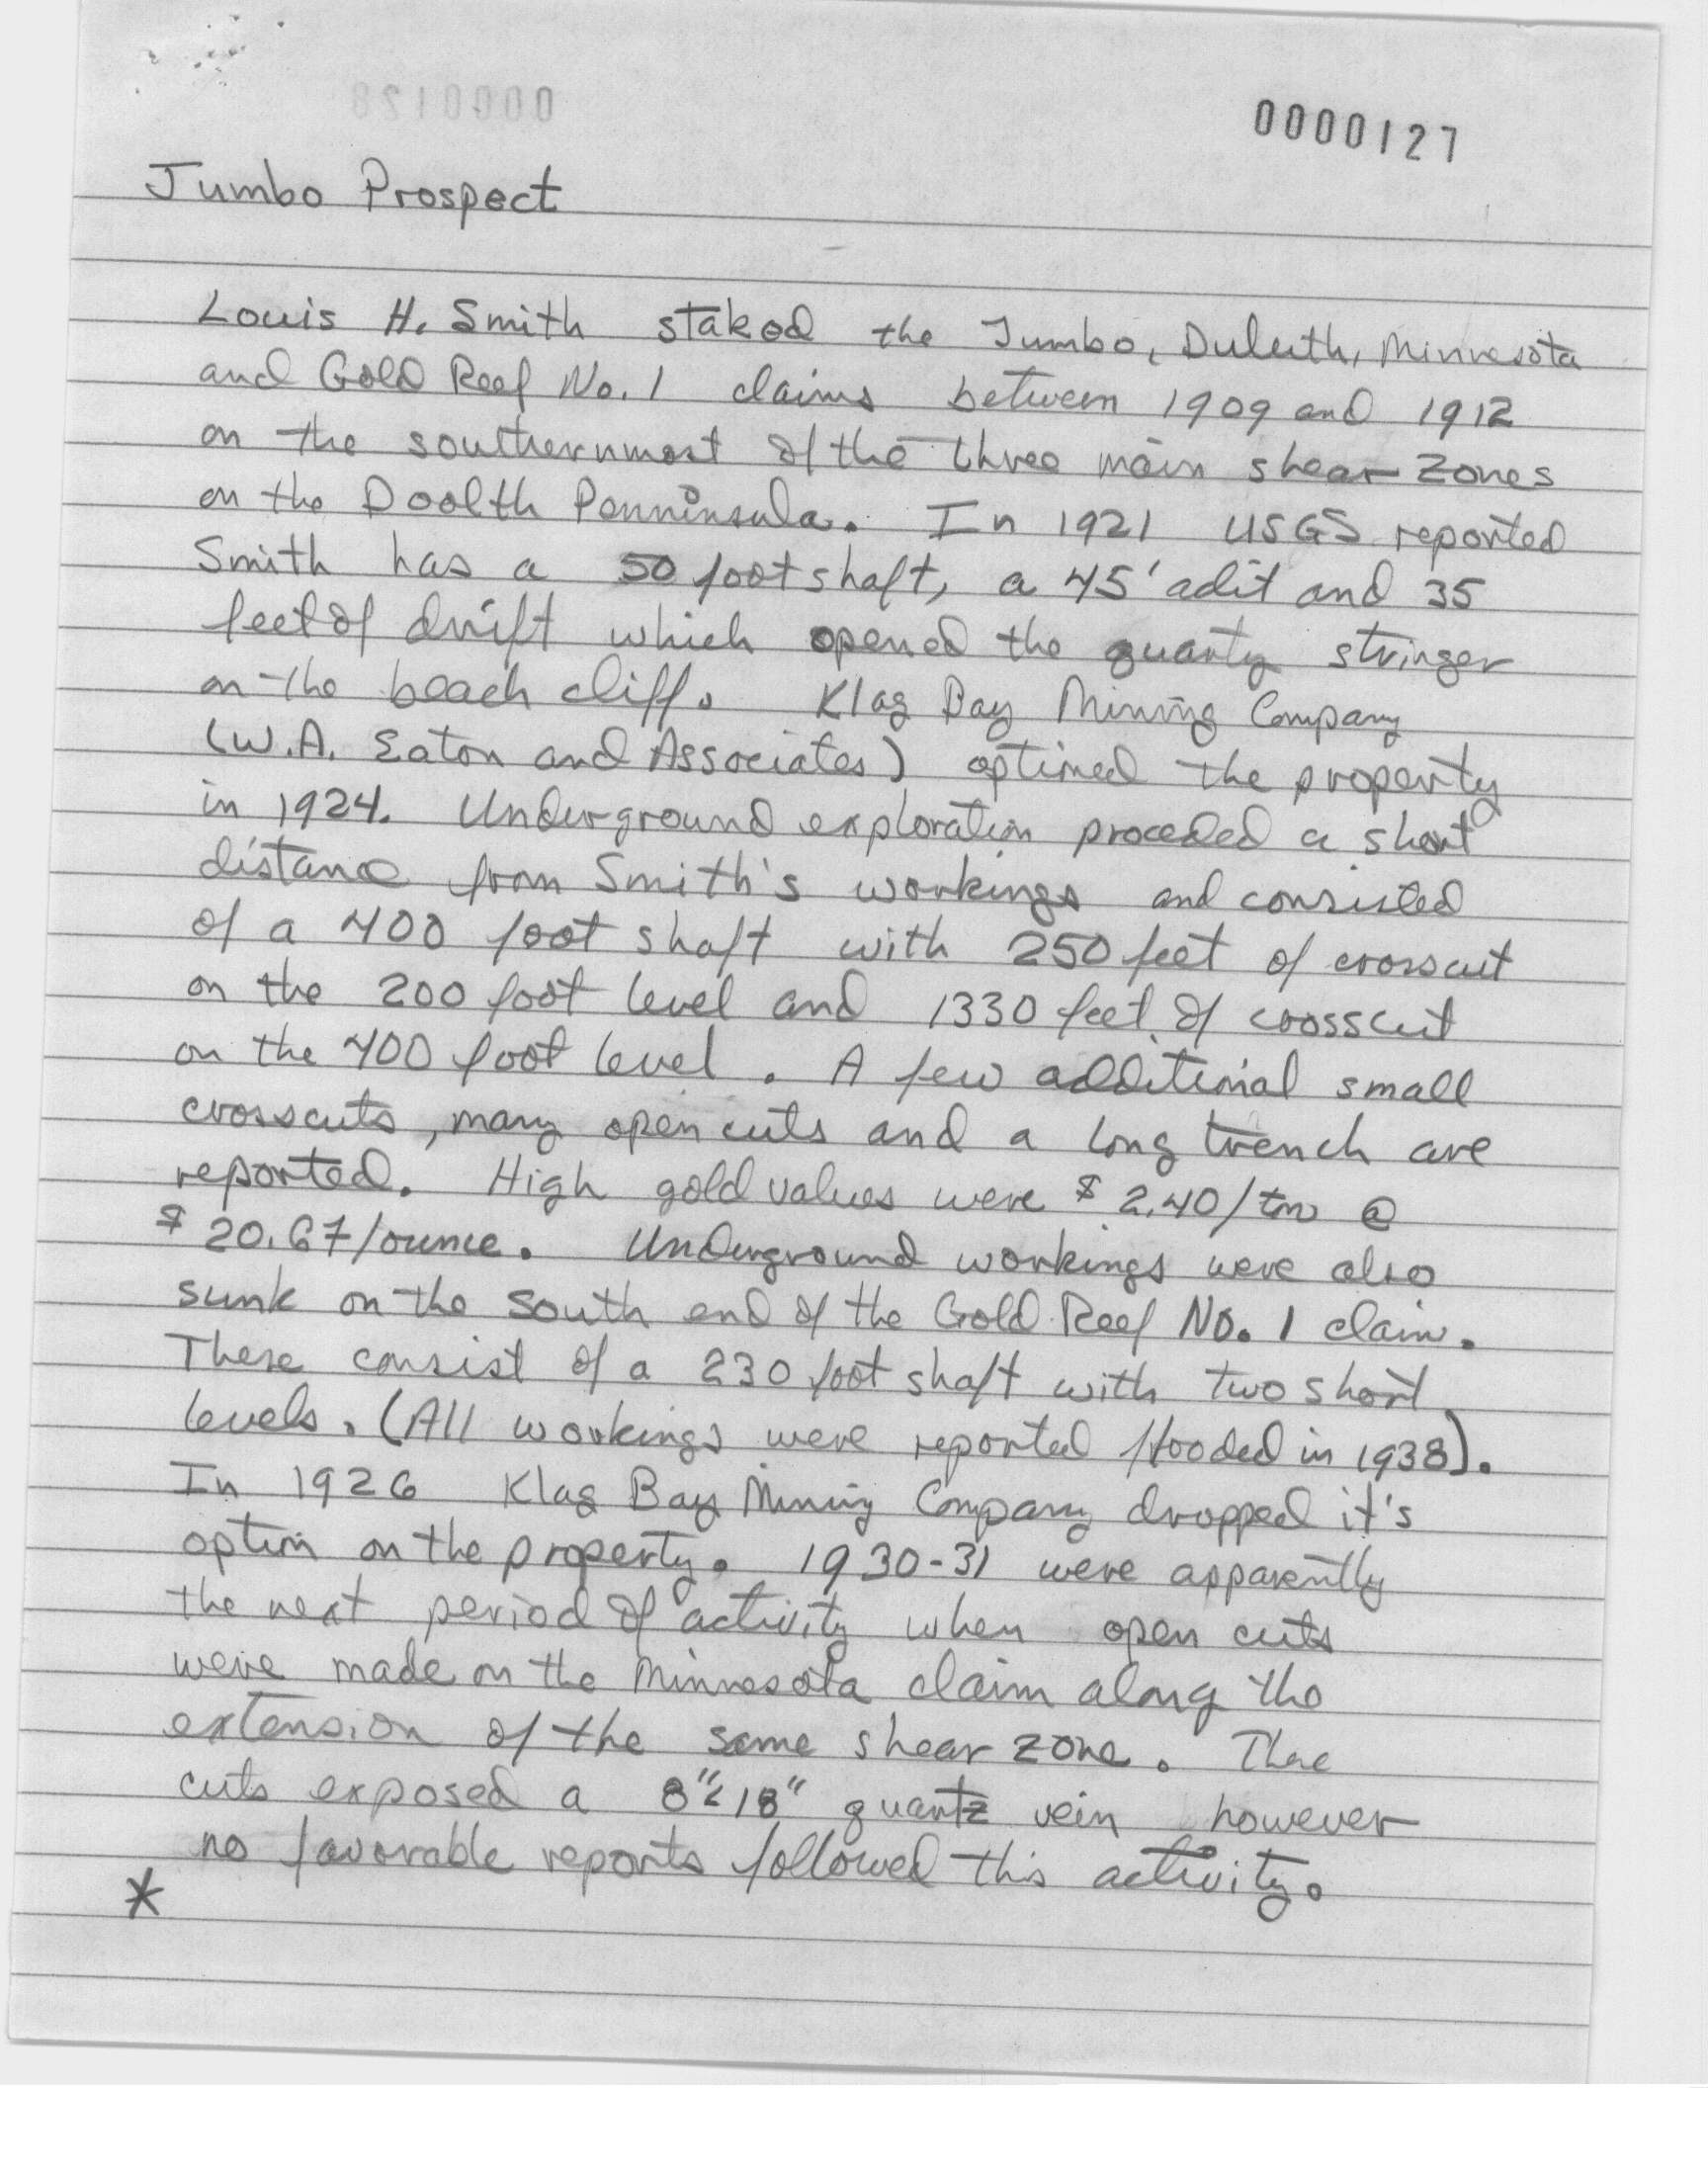 0000128
0000127
Jumbo Prospect
Louis H. Smith staked the Jumbo, Duluth, Minnesota
and Gold Reef No. 1 claims between 1909 and 1912
on the southernmost of the three main shear zones
on the Doolth Penninsula. In 1921 USGS reported
Smith has a 50 foot shaft, a 45' adit and 35
feet of drift which opened the quartz stringer
on the beach cliff. Klag Bay Mining Company
(W.A. Eaton and Associates) optioned the property
in 1924. Underground exploration proceded a short
distance from Smith's workings and consisted
of a 400 foot shaft with 250 feet of crosscut
on the 200 foot level and 1330 feet of crosscut
on the 400 foot level. A few additional small
crosscuts, many open cuts and a long trench are
reported. High gold values were $2.40/ton @
$20.67/ounce. Underground workings were also
sunk on the south end of the Gold Reef No. 1 claim.
These consist of a 230 foot shaft with two short
levels. (All workings were reported flooded in 1938).
In 1926 Klag Bay Mining Company dropped it's
option on the property. 1930-31 were apparently
the next period of activity when open cuts
were made on the Minnesota claim along the
extension of the same shear zone. These
cuts exposed a 8"-18" quartz vein however
no favorable reports followed this activity.
*